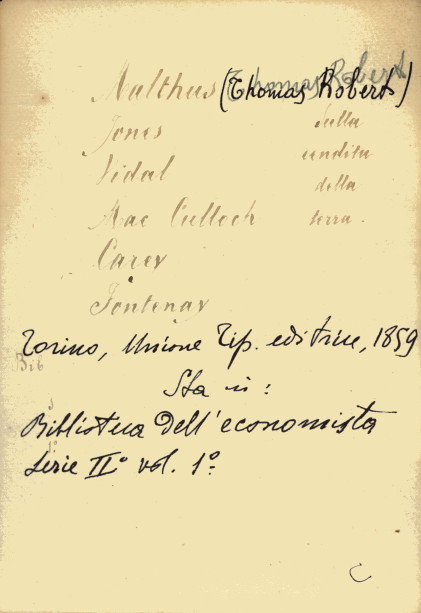 Malthus (Thomas Robert)
Jones
Sulla
Vidal
rendita
della
Mac Culloch
terra.
Carey
Fontenay
Torino, Unione Tip. editrice, 1859
Bib
Sta in:
Biblioteca dell'economista
Serie IIª vol. 1º